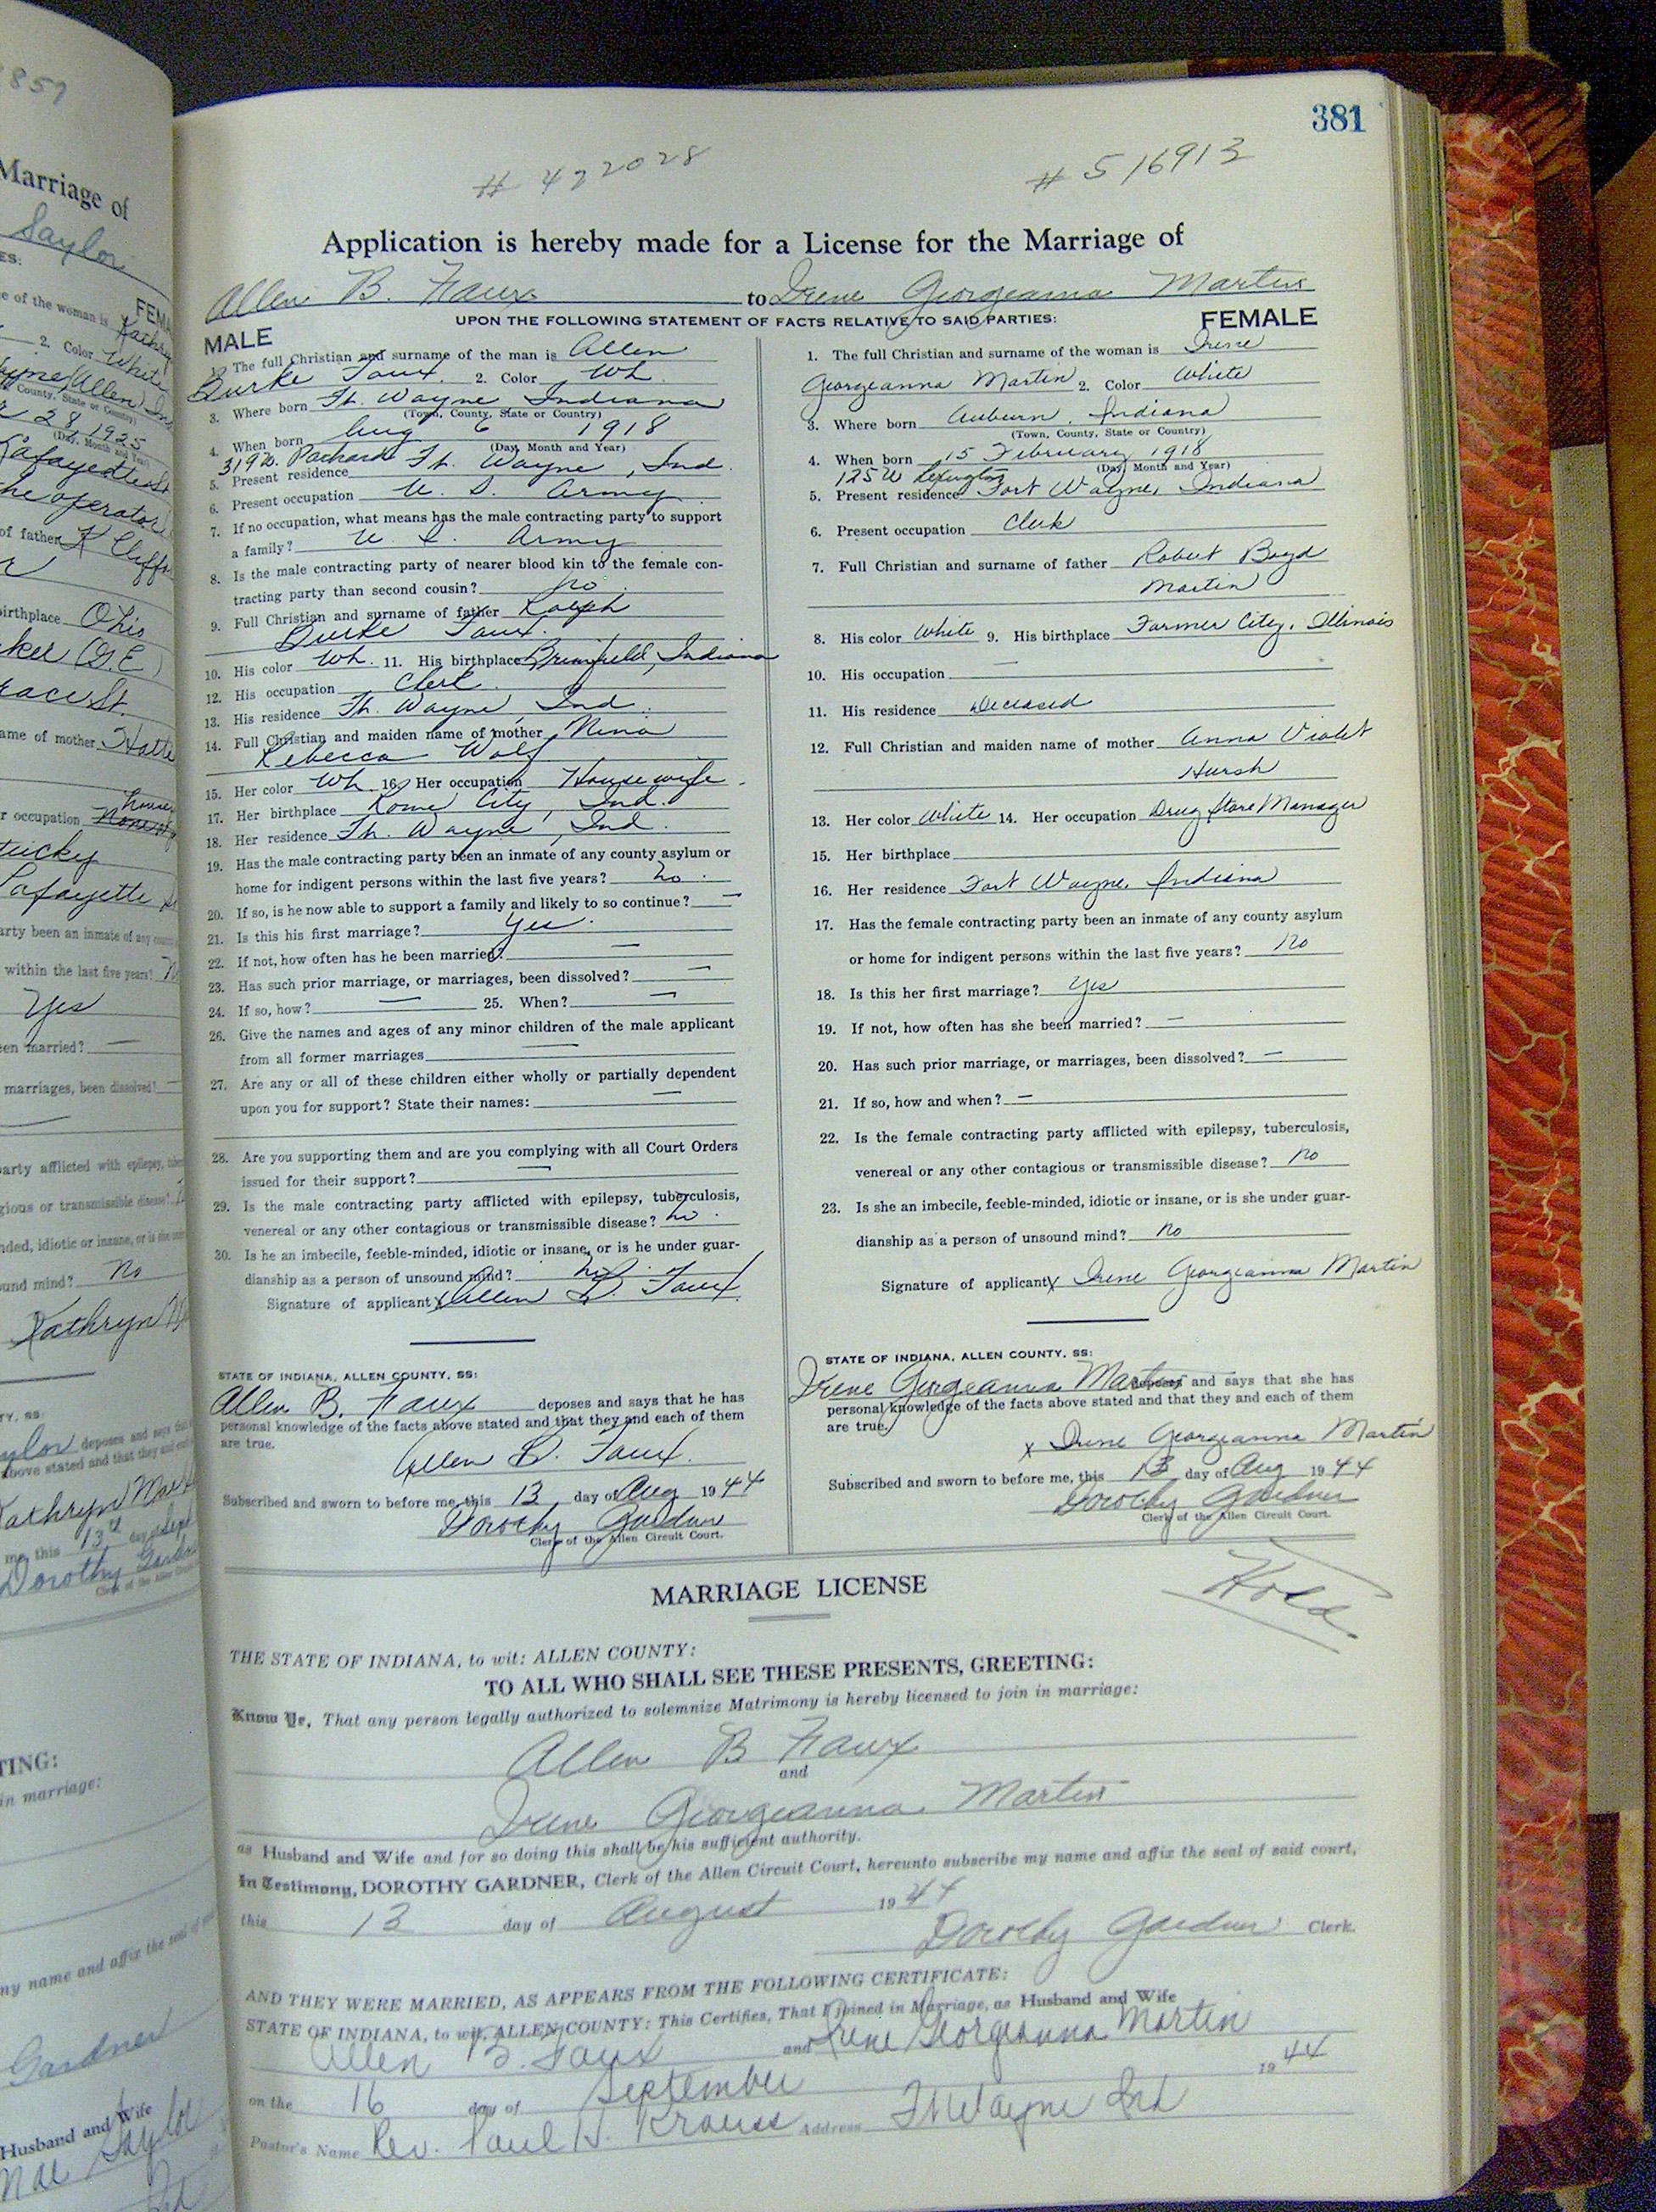 381
# 422028
# 516913
Application is hereby made for a License for the Marriage of
Allen B. Faux to Irene Georgeanna Martin
UPON THE FOLLOWING STATEMENT OF FACTS RELATIVE TO SAID PARTIES:
MALE
1. The full Christian and surname of the man is Allen
Burke Faux. 2. Color Wh.
3. Where born Ft. Wayne Indiana
(Town, County, State or Country)
4. When born Aug 6 1918
(Day, Month and Year)
319 W. Packard
5. Present residence Ft. Wayne, Ind.
6. Present occupation U. S. Army
7. If no occupation, what means has the male contracting party to support
a family? U. S. Army
8. Is the male contracting party of nearer blood kin to the female con-
tracting party than second cousin? no
9. Full Christian and surname of father Ralph
Burke Faux.
10. His color Wh. 11. His birthplace Brimfield, Indiana
12. His occupation Clerk.
13. His residence Ft. Wayne, Ind.
14. Full Christian and maiden name of mother Nina
Rebecca Wolf
15. Her color Wh. 16. Her occupation Housewife.
17. Her birthplace Rome City, Ind.
18. Her residence Ft. Wayne, Ind.
19. Has the male contracting party been an inmate of any county asylum or
home for indigent persons within the last five years? no.
20. If so, is he now able to support a family and likely to so continue? —
21. Is this his first marriage? Yes.
22. If not, how often has he been married? —
23. Has such prior marriage, or marriages, been dissolved? —
24. If so, how? — 25. When? —
26. Give the names and ages of any minor children of the male applicant
from all former marriages —
27. Are any or all of these children either wholly or partially dependent
upon you for support? State their names: —
28. Are you supporting them and are you complying with all Court Orders
issued for their support? —
29. Is the male contracting party afflicted with epilepsy, tuberculosis,
venereal or any other contagious or transmissible disease? no.
30. Is he an imbecile, feeble-minded, idiotic or insane, or is he under guar-
dianship as a person of unsound mind? no.
Signature of applicant x Allen B. Faux
STATE OF INDIANA, ALLEN COUNTY, SS:
Allen B. Faux deposes and says that he has
personal knowledge of the facts above stated and that they and each of them
are true.
Allen B. Faux.
Subscribed and sworn to before me, this 13 day of Aug 1944
Dorothy Gardner
Clerk of the Allen Circuit Court.
FEMALE
1. The full Christian and surname of the woman is Irene
Georgeanna Martin 2. Color White
3. Where born Auburn, Indiana
(Town, County, State or Country)
4. When born 15 February 1918
(Day, Month and Year)
125 W Lexington
5. Present residence Fort Wayne, Indiana
6. Present occupation Clerk
7. Full Christian and surname of father Robert Boyd
Martin
8. His color White 9. His birthplace Farmer City, Illinois
10. His occupation —
11. His residence Deceased
12. Full Christian and maiden name of mother Anna Violet
Hursh
13. Her color White 14. Her occupation Drug Store Manager
15. Her birthplace
16. Her residence Fort Wayne, Indiana
17. Has the female contracting party been an inmate of any county asylum
or home for indigent persons within the last five years? no
18. Is this her first marriage? yes
19. If not, how often has she been married? —
20. Has such prior marriage, or marriages, been dissolved? —
21. If so, how and when? —
22. Is the female contracting party afflicted with epilepsy, tuberculosis,
venereal or any other contagious or transmissible disease? no
23. Is she an imbecile, feeble-minded, idiotic or insane, or is she under guar-
dianship as a person of unsound mind? no
Signature of applicant x Irene Georgeanna Martin
STATE OF INDIANA, ALLEN COUNTY, SS:
Irene Georgeanna Martin deposes and says that she has
personal knowledge of the facts above stated and that they and each of them
are true.
x Irene Georgeanna Martin
Subscribed and sworn to before me, this 13 day of Aug 1944
Dorothy Gardner
Clerk of the Allen Circuit Court.
MARRIAGE LICENSE
Hold
THE STATE OF INDIANA, to wit: ALLEN COUNTY:
TO ALL WHO SHALL SEE THESE PRESENTS, GREETING:
Know Ye, That any person legally authorized to solemnize Matrimony is hereby licensed to join in marriage:
Allen B Faux
and
Irene Georgeanna Martin
as Husband and Wife and for so doing this shall be his sufficient authority.
In Testimony, DOROTHY GARDNER, Clerk of the Allen Circuit Court, hereunto subscribe my name and affix the seal of said court,
this 13 day of August 1944
Dorothy Gardner Clerk.
AND THEY WERE MARRIED, AS APPEARS FROM THE FOLLOWING CERTIFICATE:
STATE OF INDIANA, to wit, ALLEN COUNTY: This Certifies, That I joined in Marriage, as Husband and Wife
Allen B. Faux and Irene Georgeanna Martin
on the 16 day of September 1944
Pastor's Name Rev. Paul H. Krauss Address Ft Wayne Ind